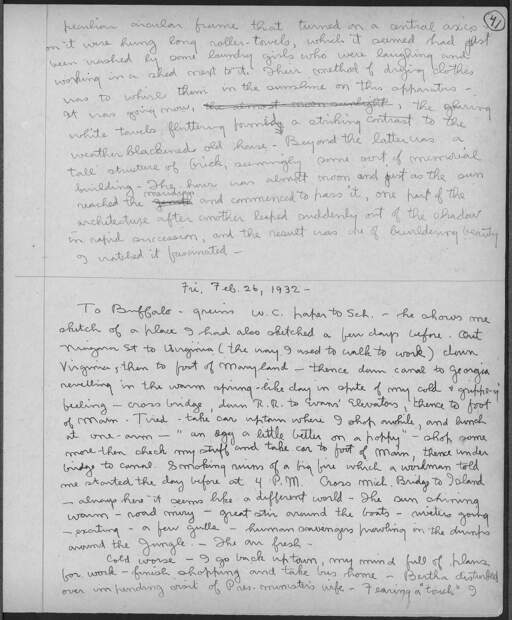 41
peculiar circular frame that turned on a central axis
on it were hung long roller-towels, which it seemed had just
been washed by some laundry girls who were laughing and
working in a shed next to it. Their method of drying clothes
was to whirl them in the sunshine on this apparatus -
It was going now, the almost noon sunlight, the glaring
white towels fluttering forming a striking contrast to the
weather blackened old house - Beyond the latter was a
tall structure of brick, seemingly some sort of memorial
building - The hour was almost noon and just as the sun
reached the meridian and commenced to pass it, one part of the
architecture after another leaped suddenly out of the shadow
in rapid succession, and the result was one of bewildering beauty
I watched it fascinated -
Fri. Feb. 26, 1932 -
To Buffalo - giving W.C. paper to Sch. - he shows me
sketch of a place I had also sketched a few days before. Out
Niagara St to Virginia (the way I used to walk to work) down
Virginia, then to foot of Maryland - thence down canal to Georgia
revelling in the warm spring-like day in spite of my cold & "grippe-y"
feeling - cross bridge, down R.R. to Evans' Elevators, thence to foot
of Main - Tired - take car uptown where I shop awhile, and lunch
at one-arm - "an egg a little better on a poppy" - shop some
more then check my stuff and take car to foot of Main, thence under
bridge to canal. Smoking ruins of a big fire which a workman told
me started the day before at 4 P.M. Cross Mich. Bridge to Island
- always here it seems like a different world - The sun shining
warm - road miry - great stir around the boats - riveters going
- exciting - a few gulls - human scavengers prowling in the dumps
around the Jungle - The air fresh -
Cold worse - I go back uptown, my mind full of plans
for work - finish shopping and take bus home - Bertha disturbed
over impending visit of Pres. minister's wife - Fearing a "touch" I